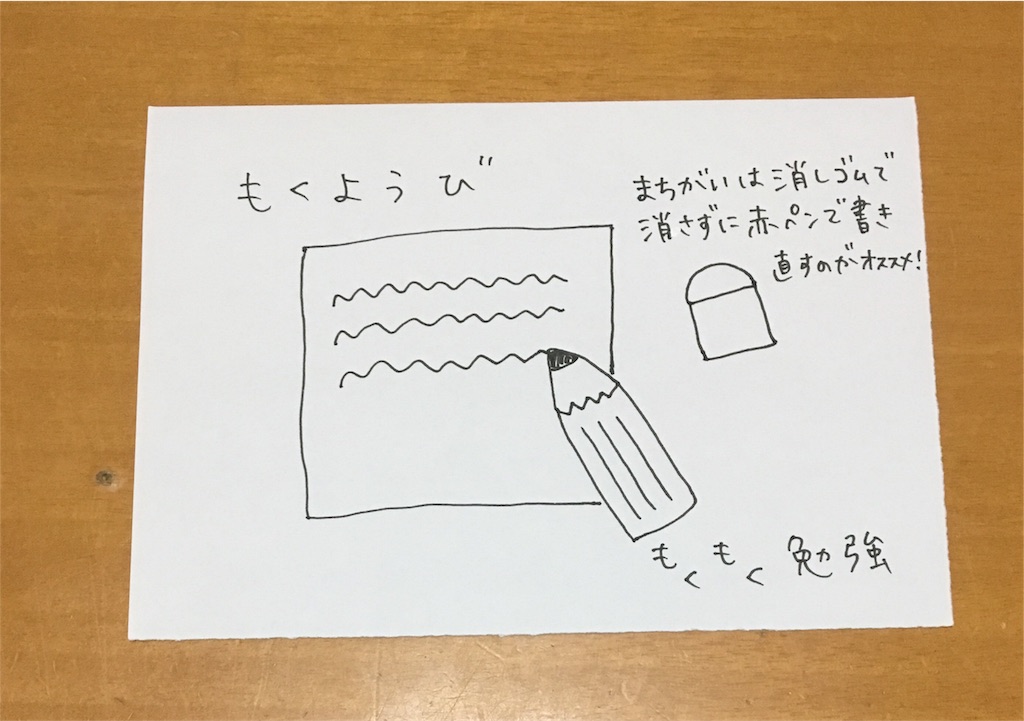 もくようび
まちがいは消しゴムで
消さずに赤ペンで書き
直すのがオススメ!
もくもく勉強